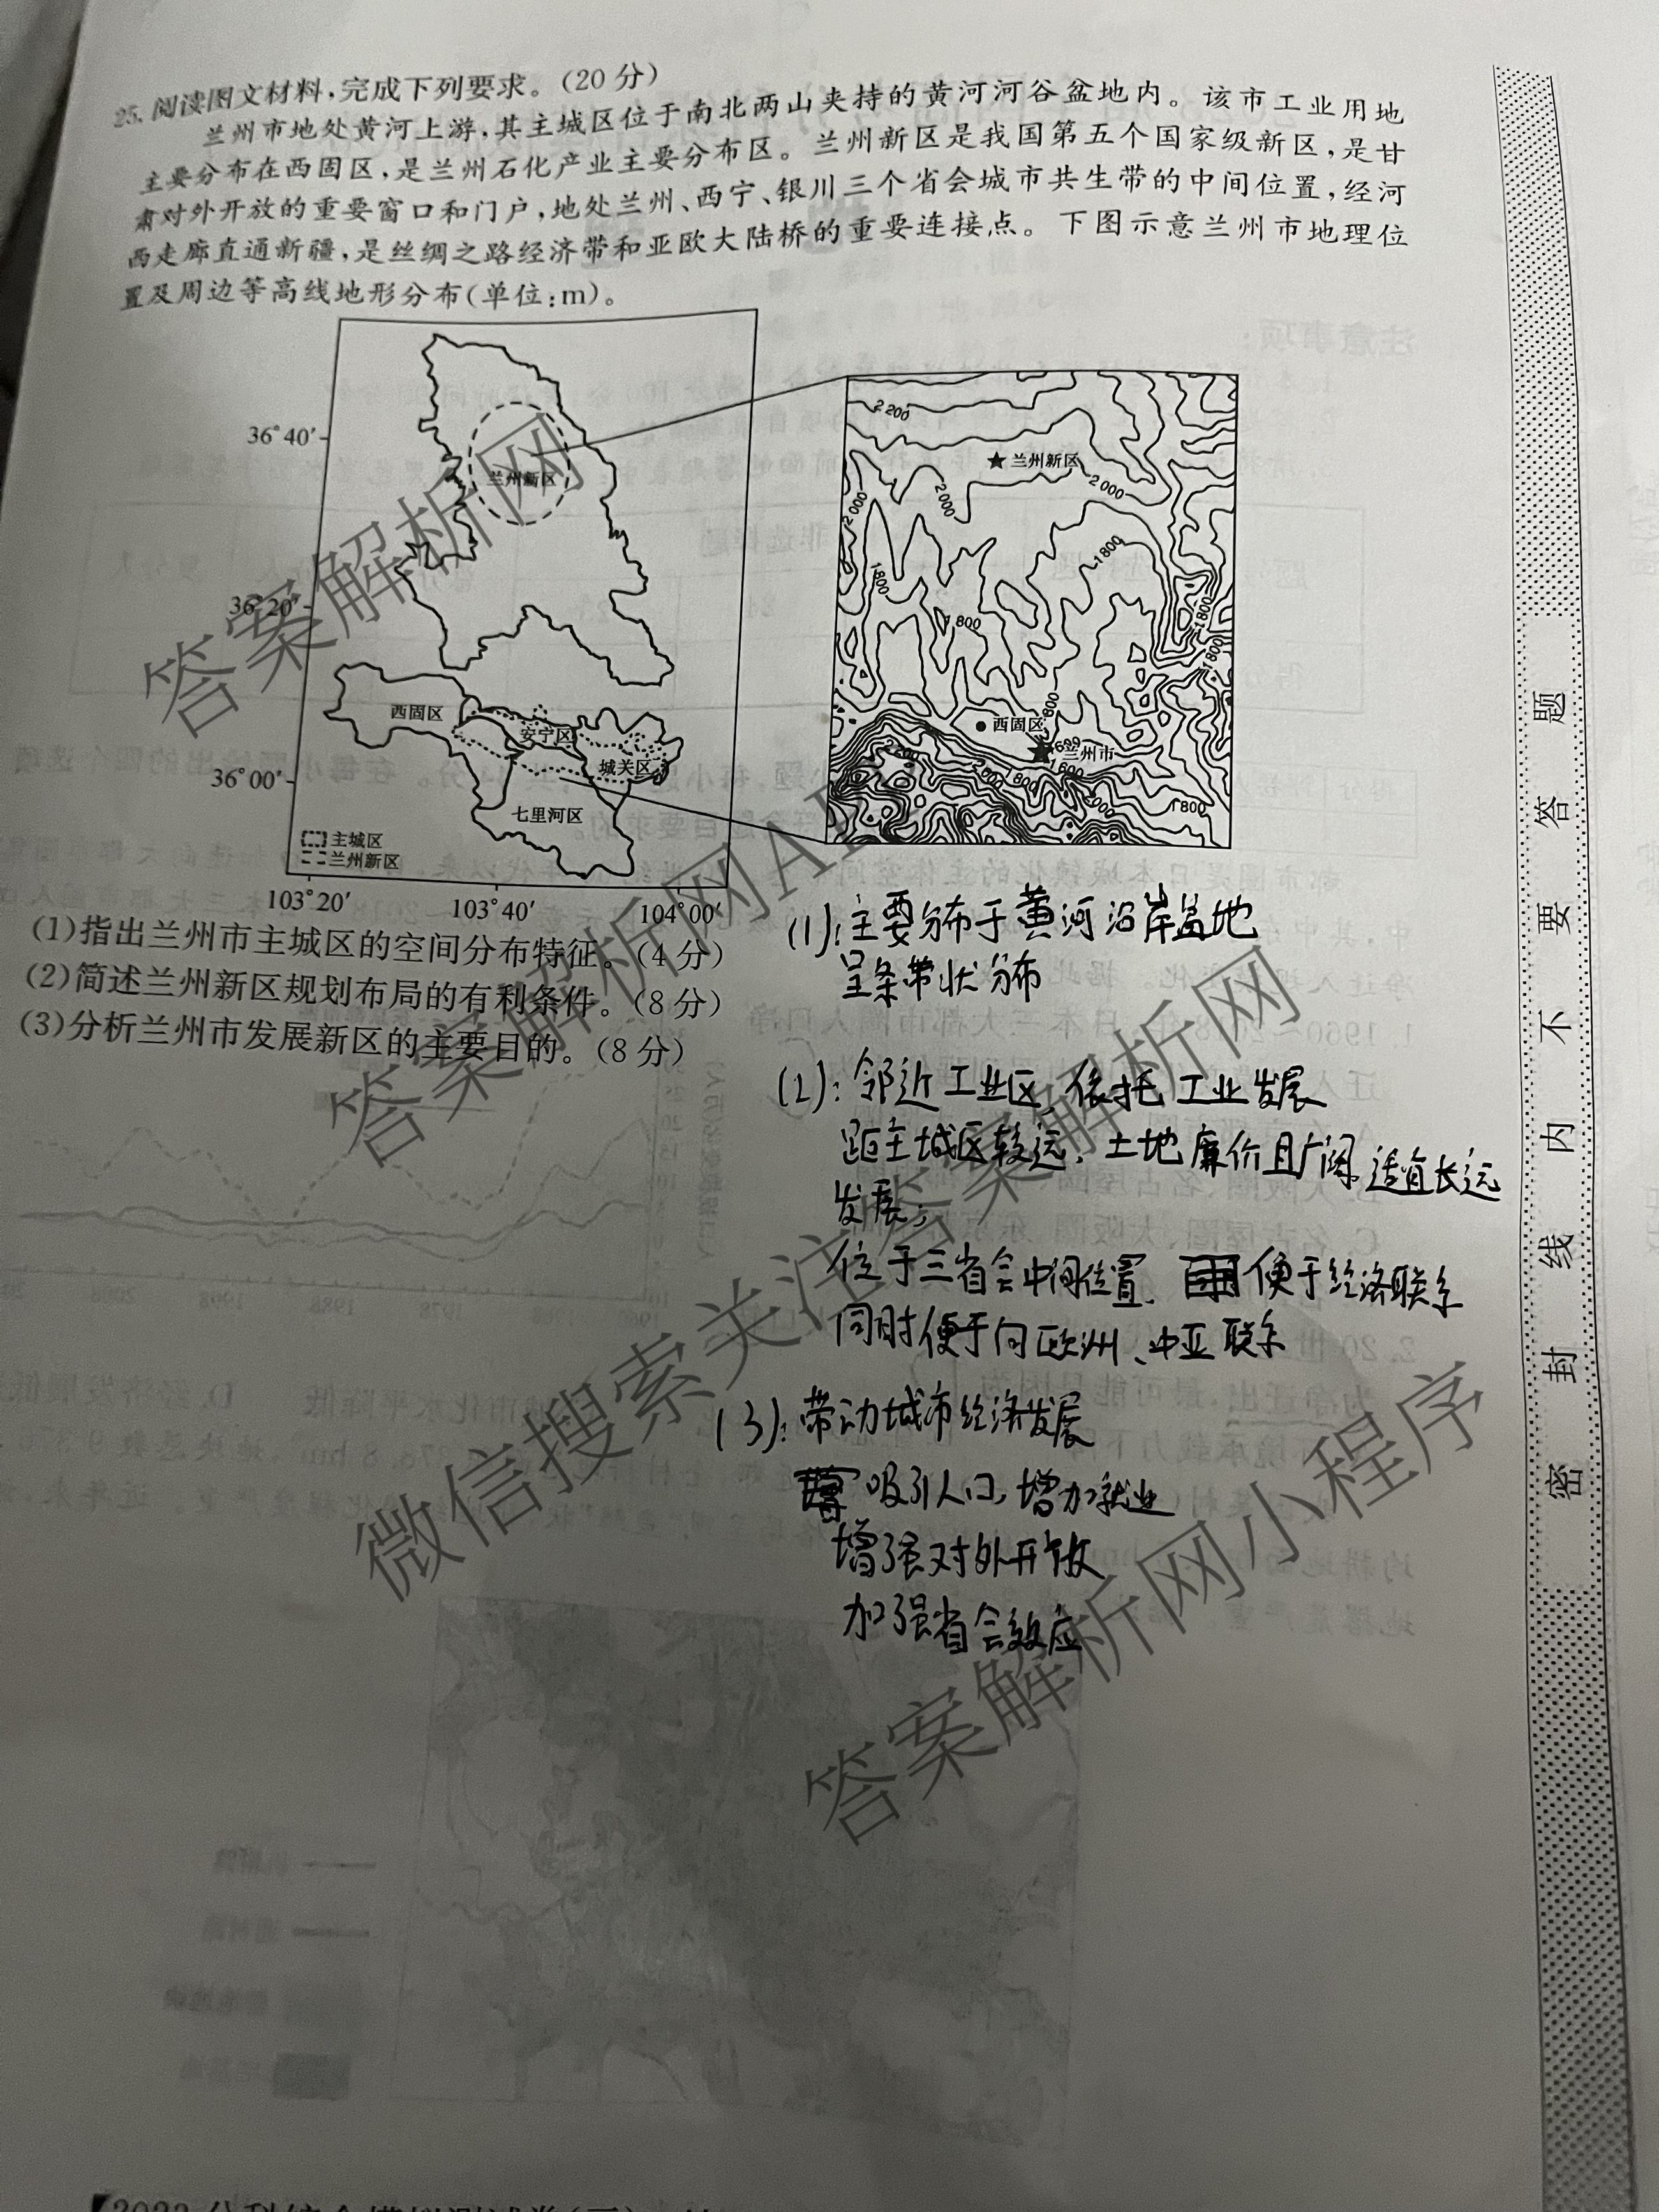 25. 阅读图文材料,完成下列要求。(20分)
兰州市地处黄河上游,其主城区位于南北两山夹持的黄河河谷盆地内。该市工业用地
主要分布在西固区,是兰州石化产业主要分布区。兰州新区是我国第五个国家级新区,是甘
肃对外开放的重要窗口和门户,地处兰州、西宁、银川三个省会城市共生带的中间位置,经河
西走廊直通新疆,是丝绸之路经济带和亚欧大陆桥的重要连接点。下图示意兰州市地理位
置及周边等高线地形分布(单位:m)。
36°40′
36°20′
36°00′
103°20′
103°40′
104°00′
兰州新区
西固区
安宁区
城关区
七里河区
主城区
兰州新区
2 200
兰州新区
2 000
2 000
2 000
1 800
1 800
1 800
1 800
1 800
800
西固区
1 600
兰州市
1 600
2 200
1 800
1 800
(1)指出兰州市主城区的空间分布特征。(4分)
(2)简述兰州新区规划布局的有利条件。(8分)
(3)分析兰州市发展新区的主要目的。(8分)
(1):主要分布于黄河沿岸盆地
呈条带状分布
(2):邻近工业区,依托工业发展
距主城区较远,土地廉价且广阔,适宜长远
发展;
位于三省会中间位置,便于经济联系
同时便于向欧洲、中亚联系
(3):带动城市经济发展
吸引人口,增加就业
增强对外开放
加强省会效应
密封线内不要答题
答案解析网
答案解析网APP
微信搜索关注答案解析网
答案解析网小程序